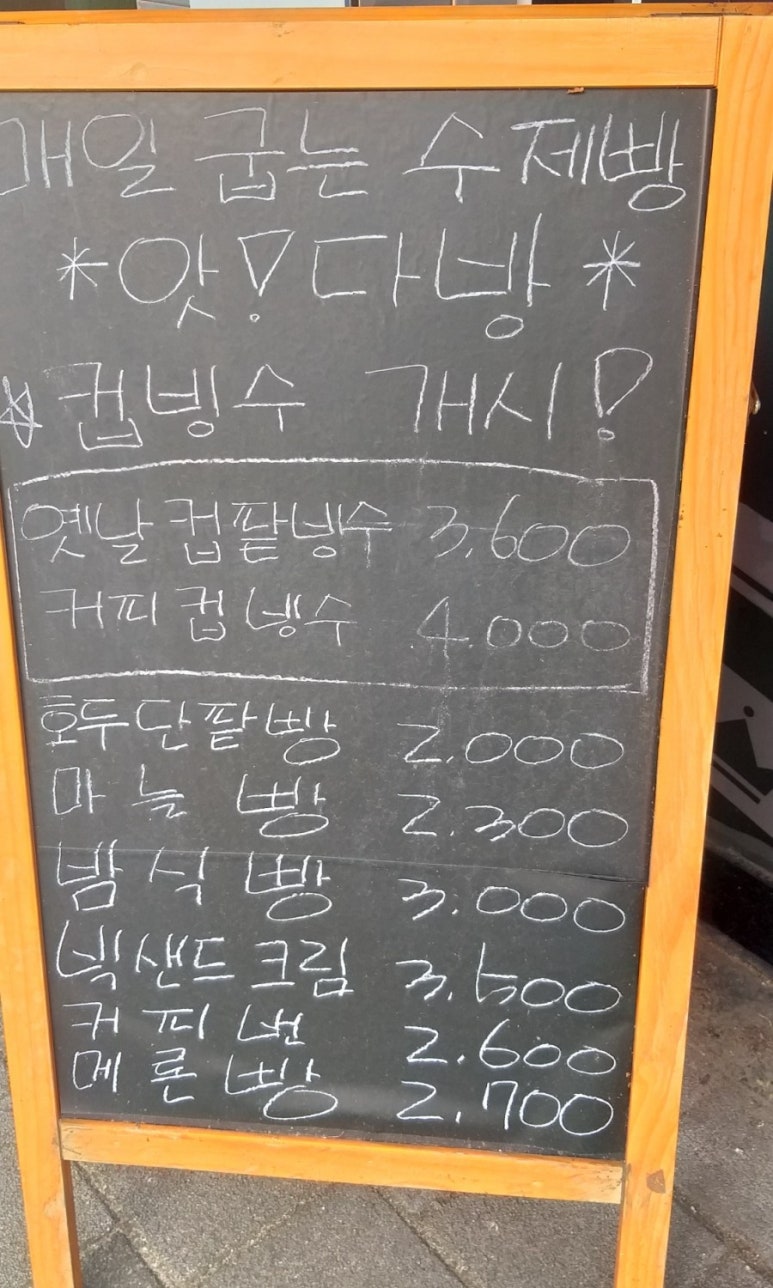 매일 굽는 수제빵
*앗! 다방*
☆컵빙수 개시!
옛날컵팥빙수 3,600
커피컵빙수 4.000
호두단팥빵 2.000
마늘빵 2.300
밤식빵 3.000
빅샌드크림 3.500
커피번 2.600
메론빵 2.700